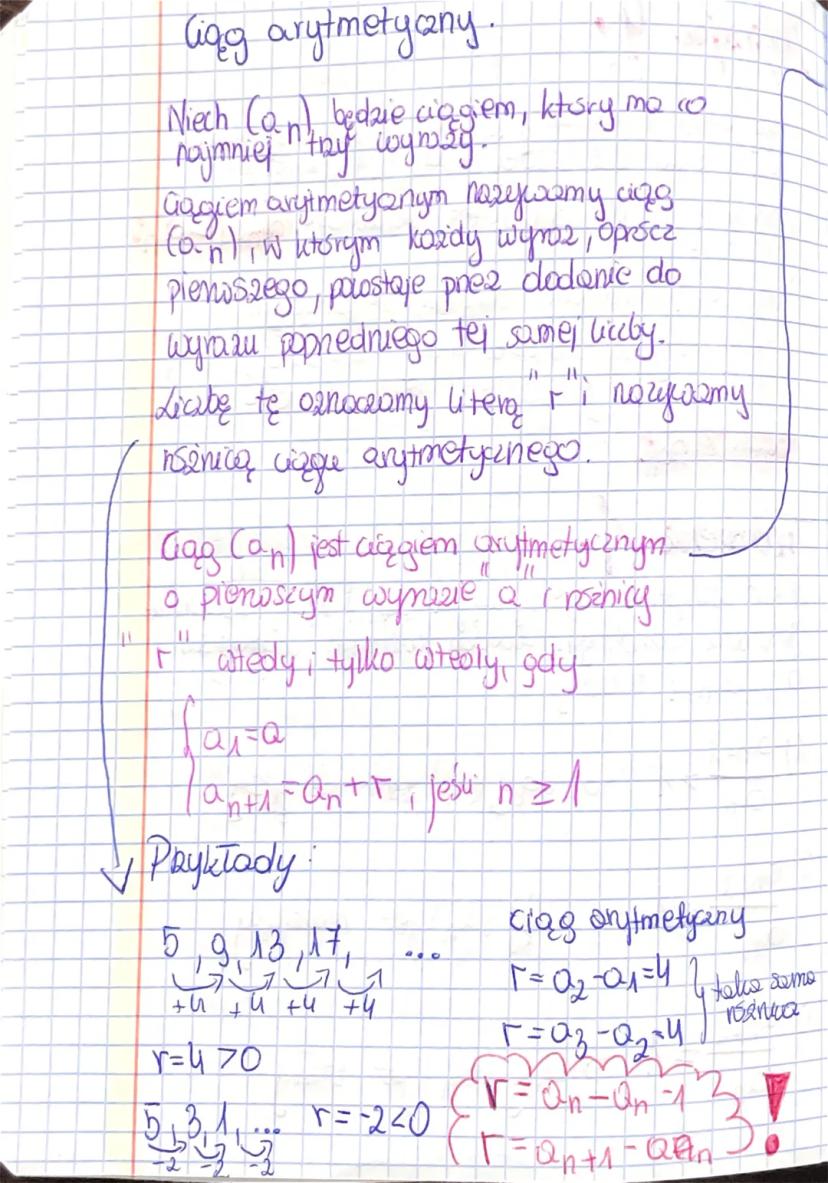 Ciąg arytmetyczny.
Niech (aₙ) będzie ciągiem, który ma co
najmniej trzy wyrazy.
Ciągiem arytmetycznym nazywamy ciąg
(aₙ), w którym każdy wyraz, oprócz
pierwszego, powstaje przez dodanie do
wyrazu poprzedniego tej samej liczby.
Liczbę tę oznaczamy literą "r" i nazywamy
różnicą ciągu arytmetycznego.
Ciąg (aₙ) jest ciągiem arytmetycznym
o pierwszym wyrazie "a" i różnicy
"r" wtedy i tylko wtedy, gdy
{ a₁ = a
aₙ₊₁ = aₙ + r, jeśli n ≥ 1
Przykłady:
ciąg arytmetyczny
5, 9, 13, 17, ...
+4 +4 +4 +4
r = a₂ - a₁ = 4
r = a₃ - a₂ = 4
} taka sama
różnica
r = 4 > 0
5, 3, 1, ... r = -2 < 0
-2 -2 -2
r = aₙ - aₙ - 1
r = aₙ₊₁ - aₙ
!